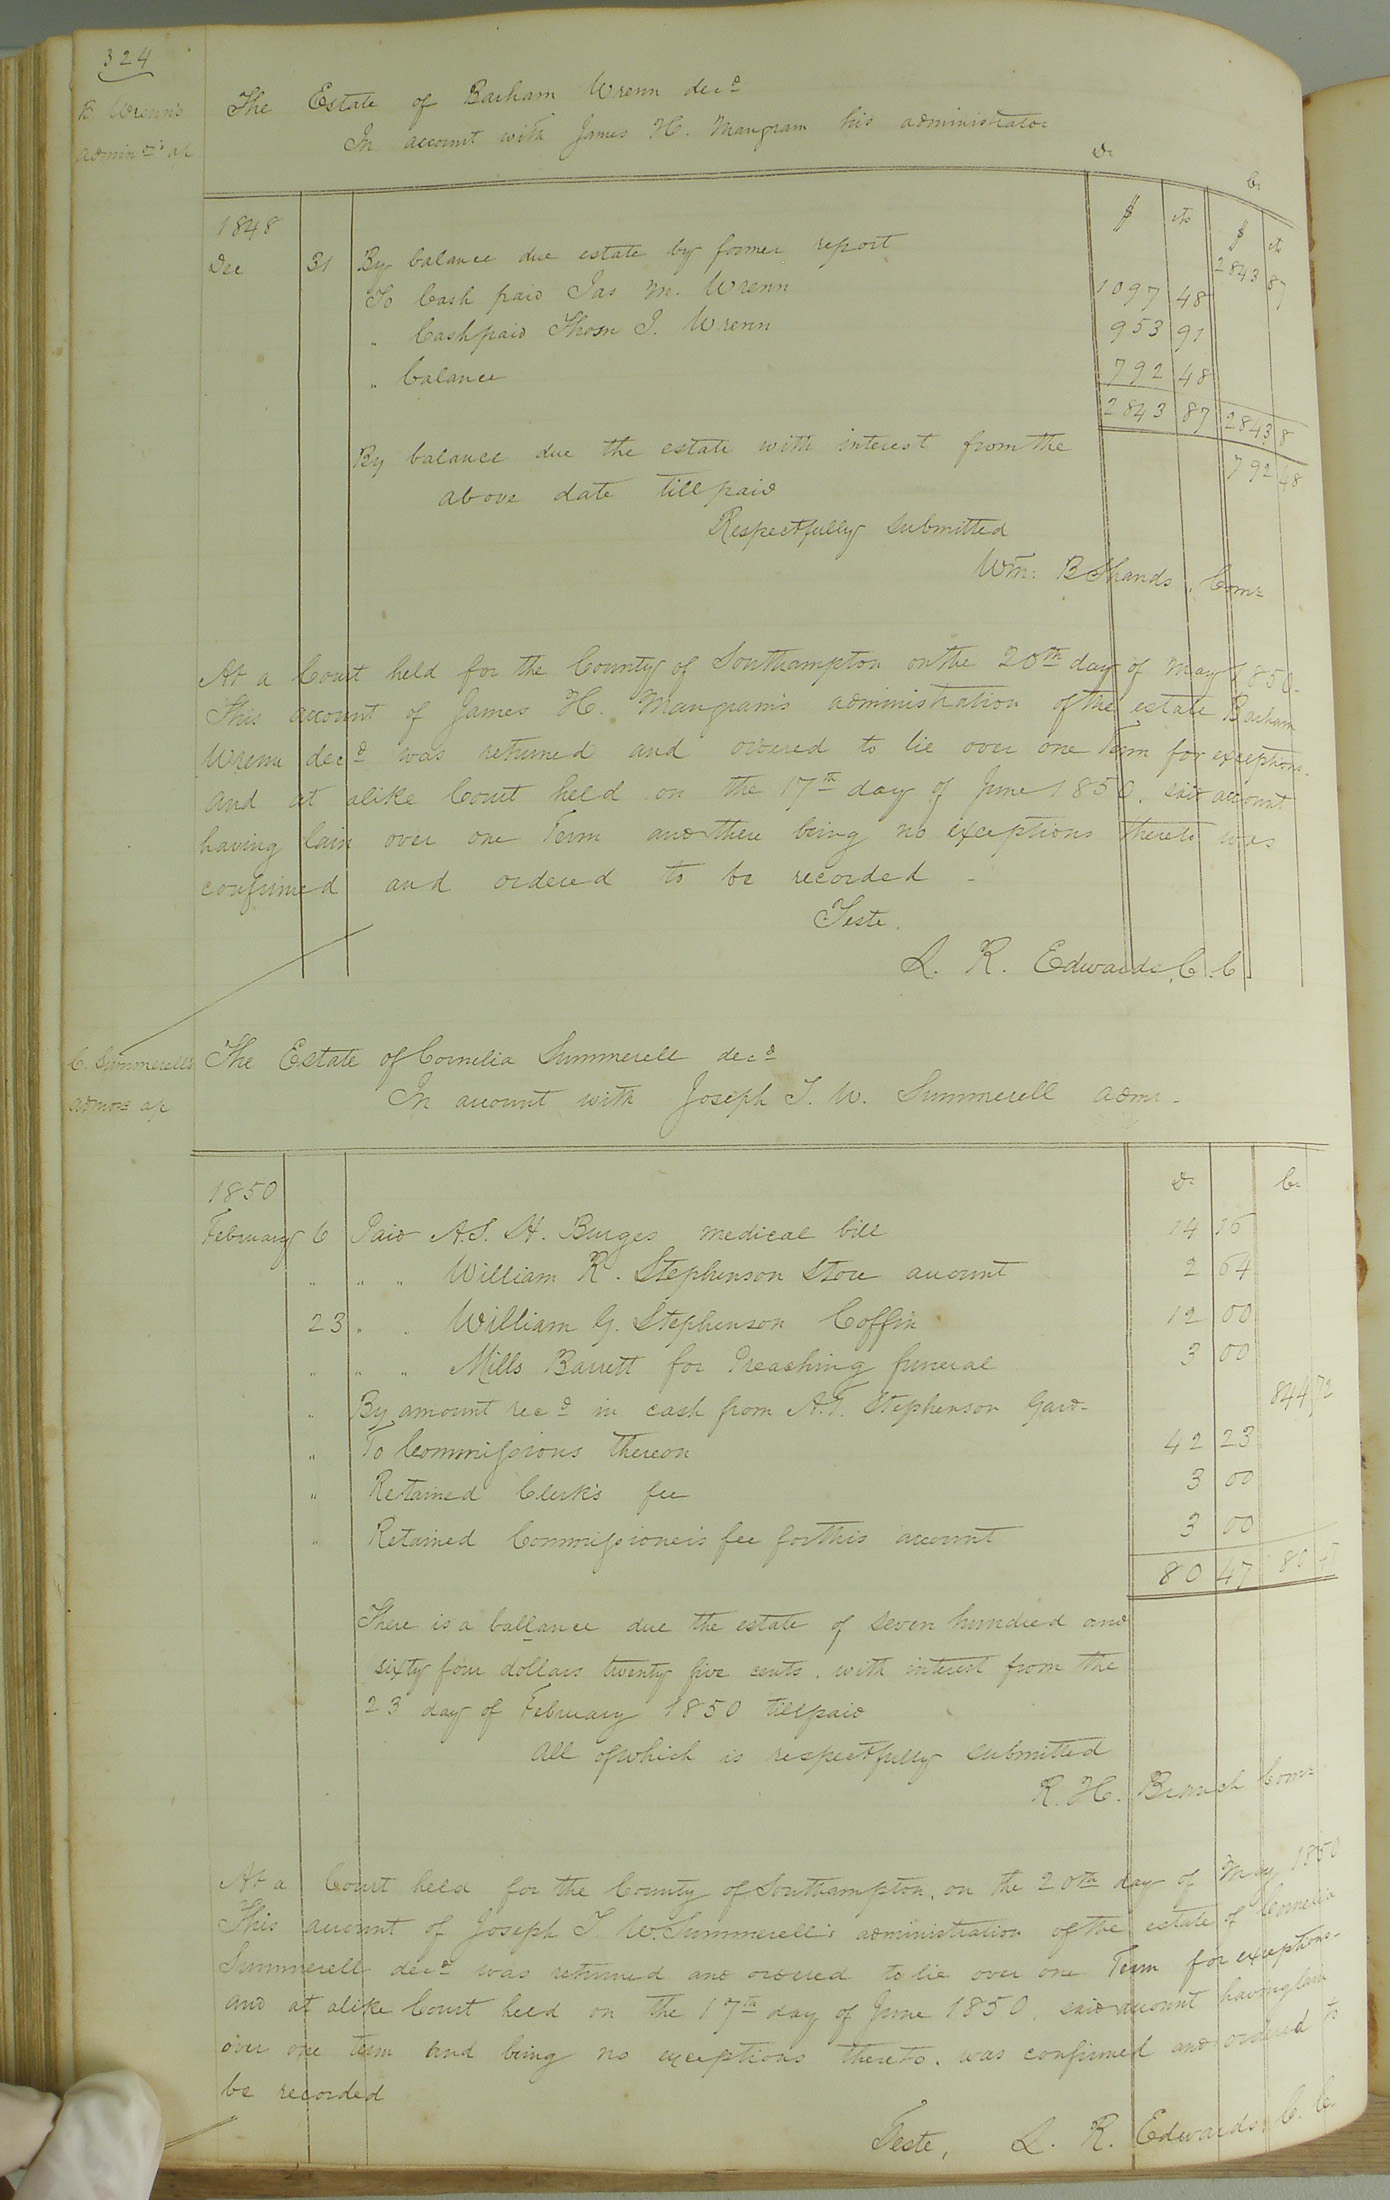 324
B. Wrenn's
admin ors a/c
The Estate of Barham Wrenn decd
In account with James H. Mangram his administrator
Dr
Cr
$ cts $ cts
1848
Dec 31 By balance due estate by former report 2843 87
To Cash paid Jas M. Wrenn 1097 48
" Cash paid Thom J. Wrenn 953 91
" balance 792 48
2843 87 2843 8
By balance due the estate with interest from the 792 48
above date till paid
Respectfully submitted
Wm. B Shands, Comr
At a Court held for the County of Southampton on the 20th day of May 1850.
This account of James H. Mangram's administration of the estate Barham
Wrenn decd was returned and ordered to lie over one Term for exceptions.
And at alike Court held on the 17th day of June 1850. said account
having lain over one Term and there being no exceptions thereto was
confirmed and ordered to be recorded -
Teste.
L. R. Edwards, C. C.
C. Summerell's
admors a/c
The Estate of Cornelia Summerell decd
In account with Joseph T. W. Summerell admr.
1850 Dr Cr
February 6 Paid A. S. H. Burges medical bill 14 16
" " " William R. Stephenson Store account 2 64
23 " " William G. Stephenson Coffin 12 00
" " " Mills Barrett for Preaching funeral 3 00
" By amount recd in cash from A. T. Stephenson Gard- 844 72
" To Commissions thereon 42 23
" Retained Clerk's fee 3 00
" Retained Commissioner's fee for this account 3 00
80 47 80 47
There is a ballance due the estate of seven hundred and
sixty four dollars twenty five cents. with interest from the
23 day of February 1850 till paid
All of which is respectfully submitted
R. H. Branch Comr
At a Court held for the County of Southampton, on the 20th day of May 1850
This account of Joseph T. W. Summerell's administration of the estate of Cornelia
Summerell decd was returned and ordered to lie over one Term for exceptions-
and at alike Court held on the 17th day of June 1850. said account having lain
over one term and being no exceptions thereto. was confirmed and ordered to
be recorded
Teste, L. R. Edwards, C. C.